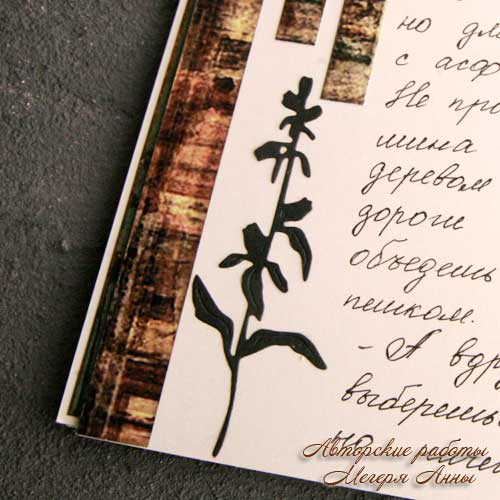 но дл
с асф
Не пр
мина
деревом
дороги
объедешь
пешком.
- А вдр
выберешь
по
Авторские работы
Мегеря Анны